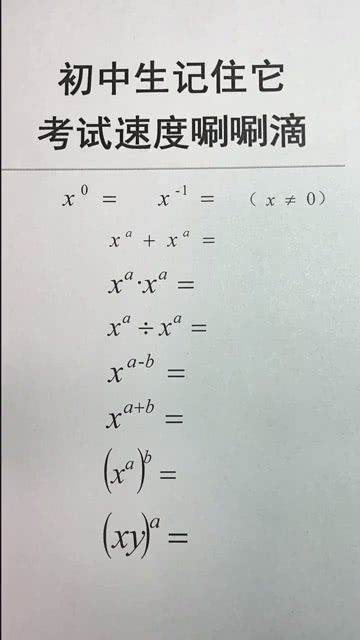 初中生记住它
考试速度唰唰滴
x⁰ = x⁻¹ = （ x ≠ 0）
xᵃ + xᵃ =
xᵃ·xᵃ =
xᵃ ÷ xᵃ =
xᵃ⁻ᵇ =
xᵃ⁺ᵇ =
(xᵃ)ᵇ =
(xy)ᵃ =